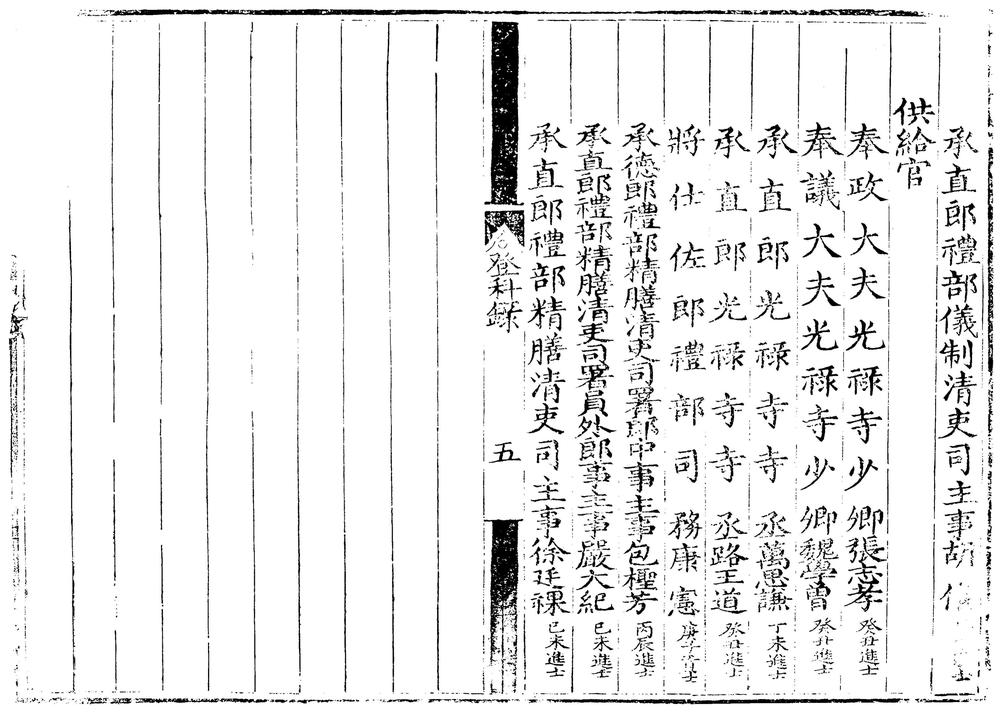 承直郎禮部儀制清吏司主事胡
供給官
奉政大夫光祿寺少卿張志孝癸丑進士
奉議大夫光祿寺少卿魏學曾癸丑進士
承直郎光祿寺寺丞萬思謙丁未進士
承直郎光祿寺寺丞路王道癸丑進士
將仕佐郎禮部司務康憲庚子貢士
承德郎禮部精膳清吏司署郎中事主事包檉芳丙辰進士
承直郎禮部精膳清吏司署員外郎事主事嚴大紀己未進士
承直郎禮部精膳清吏司主事徐廷祼己未進士
登科錄
五